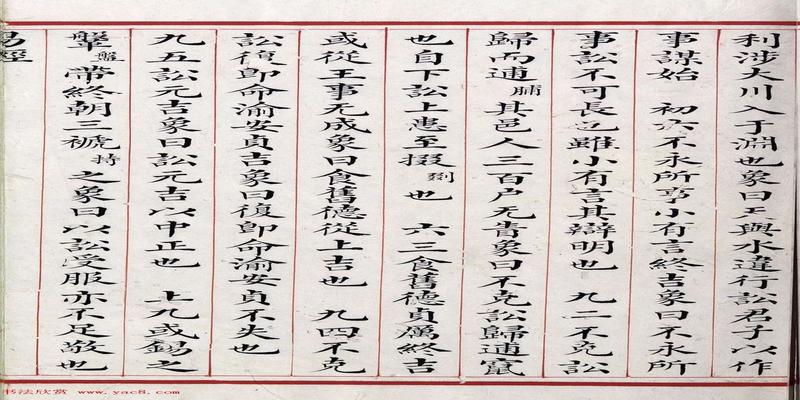 利涉大川入于淵也象曰天與水違行訟君子以作
事謀始 初六不永所事小有言終吉象曰不永所
事訟不可長也雖小有言其辯明也 九二不克訟
歸而逋脯其邑人三百户无眚象曰不克訟歸逋竄
也自下訟上患至掇剟也 六三食舊德貞厲終吉
或從王事无成象曰食舊德從上吉也 九四不克
訟復即命渝安貞吉象曰復即命渝安貞不失也
九五訟元吉象曰訟元吉以中正也 上九或錫之
鞶盤帶終朝三褫之象曰以訟受服亦不足敬也
易經
书法欣赏 www.yac8.com